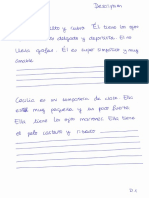 Descripción
alto y rubio. Él tiene los ojos
delgado y deportista. Él no
lleva gafas. Él es super simpático y muy
Cecilia es mi compañera de clase. Ella
es muy pequeña y un poco fuerte.
Ella tiene los ojos marrones. Ella tiene
el pelo castaño y liso